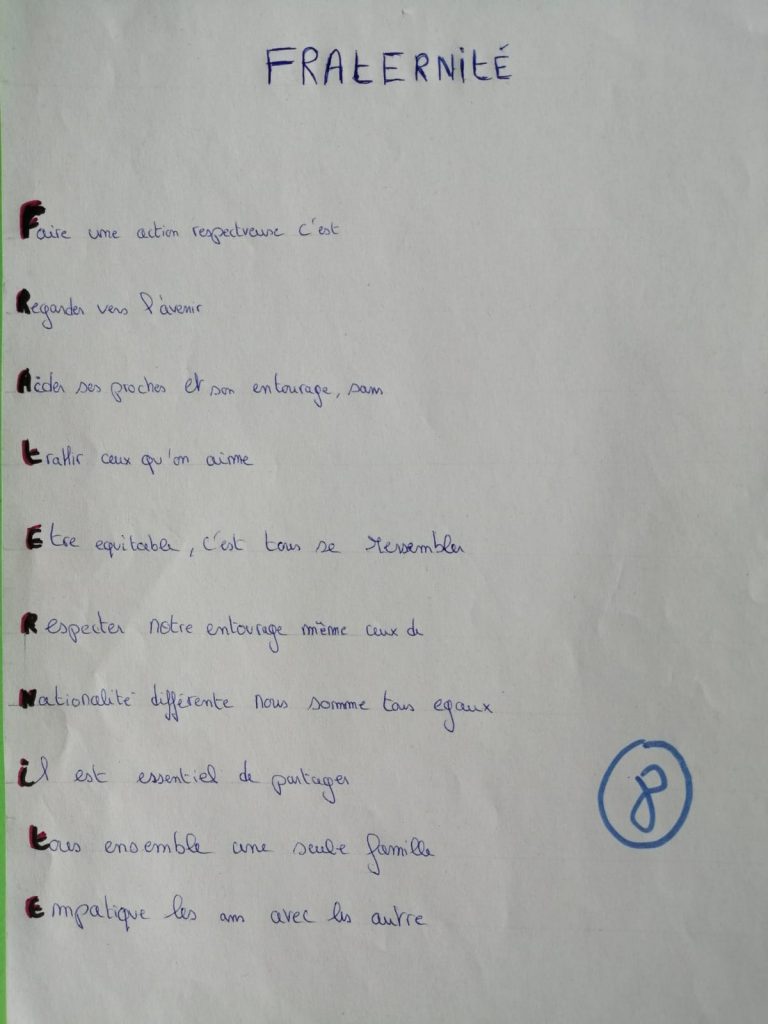 FRAtERNitÉ
Faire une action respectveuse c'est
Regarder vers l'àvenir
Aider ses proches et son entourage, sans
trahir ceux qu'on aime
Etre equitable, c'est tous se ressembler
Respecter notre entourage même ceux de
Nationalité différente nous somme tous egaux
il est essentiel de partager
tous ensemble une seule famille
Empatique les uns avec les autre
8